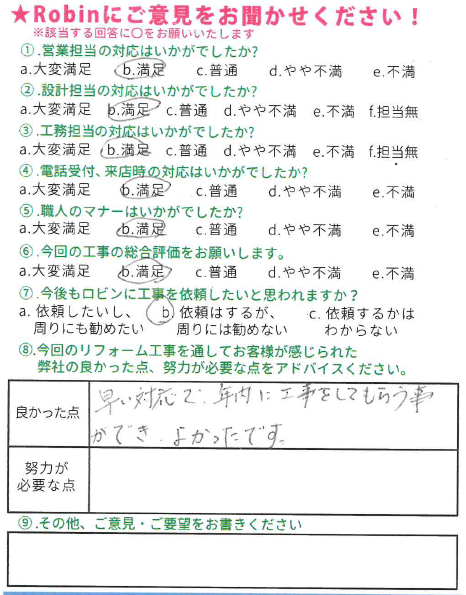 ★Robinにご意見をお聞かせください！
※該当する回答に〇をお願いいたします
①.営業担当の対応はいかがでしたか?
a.大変満足 b.満足 c.普通 d.やや不満 e.不満
②.設計担当の対応はいかがでしたか?
a.大変満足 b.満足 c.普通 d.やや不満 e.不満 f.担当無
③.工務担当の対応はいかがでしたか?
a.大変満足 b.満足 c.普通 d.やや不満 e.不満 f.担当無
④.電話受付、来店時の対応はいかがでしたか?
a.大変満足 b.満足 c.普通 d.やや不満 e.不満
⑤.職人のマナーはいかがでしたか?
a.大変満足 b.満足 c.普通 d.やや不満 e.不満
⑥.今回の工事の総合評価をお願いします。
a.大変満足 b.満足 c.普通 d.やや不満 e.不満
⑦.今後もロビンに工事を依頼したいと思われますか？
a. 依頼したいし、 b 依頼はするが、 c. 依頼するかは
周りにも勧めたい 周りには勧めない わからない
⑧.今回のリフォーム工事を通してお客様が感じられた
弊社の良かった点、努力が必要な点をアドバイスください。
良かった点
早い対応で、年内に工事をしてもらう事
ができ、よかったです。
努力が
必要な点
⑨.その他、ご意見・ご要望をお書きください